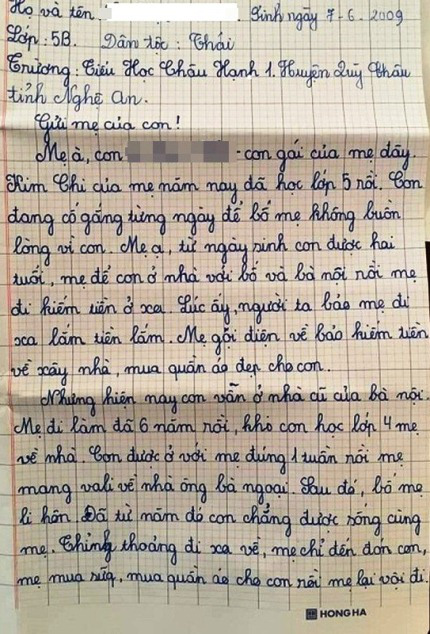 Họ và tên Sinh ngày 7-6.2009
Lớp: 5B. Dân tộc: Thái
Trường: Tiểu Học Châu Hạnh 1. Huyện Quỳ Châu
tỉnh Nghệ An.
Gửi mẹ của con!
Mẹ à, con - con gái của mẹ đây.
Kim Chi của mẹ năm nay đã học lớp 5 rồi. Con
đang cố gắng từng ngày để bố mẹ không buồn
lòng vì con. Mẹ ạ, từ ngày sinh con được hai
tuổi, mẹ để con ở nhà với bố và bà nội rồi mẹ
đi kiếm tiền ở xa. Lúc ấy, người ta bảo mẹ đi
xa lắm tiền lắm. Mẹ gọi điện về bảo kiếm tiền
về xây nhà, mua quần áo đẹp cho con.
Nhưng hiện nay con vẫn ở nhà cũ của bà nội.
Mẹ đi làm đã 6 năm rồi, khi con học lớp 4 mẹ
về nhà. Con được ở với mẹ đúng 1 tuần rồi mẹ
mang vali về nhà ông bà ngoại. Sau đó, bố mẹ
li hôn. Đã từ năm đó con chẳng được sống cùng
mẹ. Thỉnh thoảng đi xa về, mẹ chỉ đến đón con,
mẹ mua sữa, mua quần áo cho con rồi mẹ lại vội đi.
HONG HA